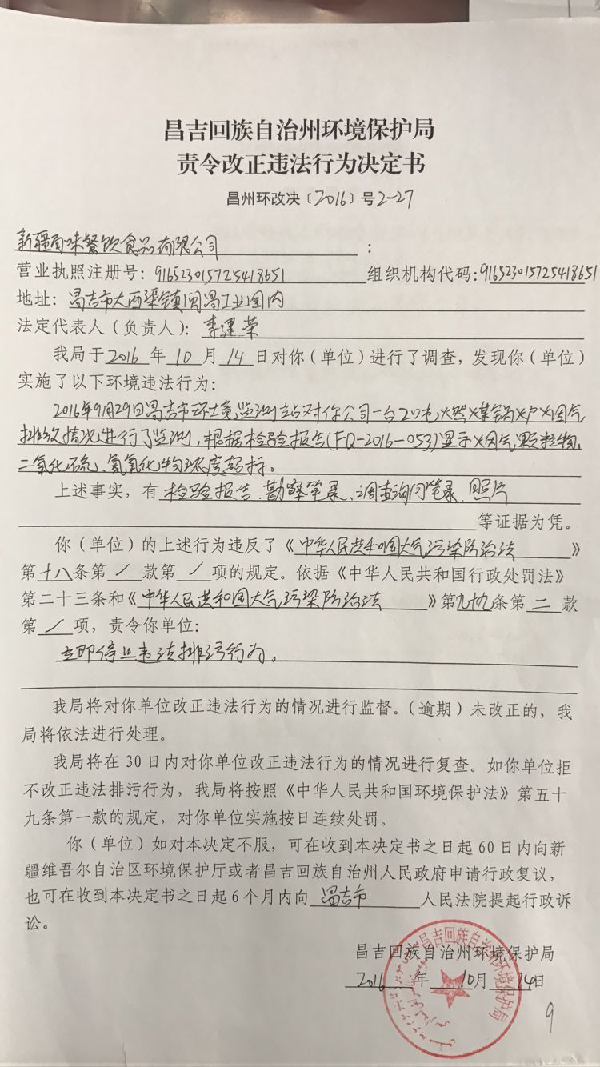 昌吉回族自治州环境保护局
责令改正违法行为决定书
昌州环改决〔2016〕号2-27
新疆西味餐饮食品有限公司：
营业执照注册号：916523015725418651 组织机构代码：916523015725418651
地址：昌吉市大西渠镇闽昌工业园内
法定代表人（负责人）：李建荣
我局于2016年10月14日对你（单位）进行了调查，发现你（单位）
实施了以下环境违法行为：
2016年9月29日昌吉市环境监测站对你公司一台20吨燃煤锅炉烟气
排放情况进行了监测，根据检验报告（FQ-2016-053）显示烟气颗粒物、
二氧化硫、氮氧化物浓度超标。
上述事实，有检验报告、勘察笔录、调查询问笔录、照片
等证据为凭。
你（单位）的上述行为违反了《中华人民共和国大气污染防治法》
第十八条第/款第/项的规定。依据《中华人民共和国行政处罚法》
第二十三条和《中华人民共和国大气污染防治法》第九九条第二款
第/项，责令你单位：
立即停止违法排污行为。
我局将对你单位改正违法行为的情况进行监督。（逾期）未改正的，我
局将依法进行处理。
我局将在30日内对你单位改正违法行为的情况进行复查、如你单位拒
不改正违法排污行为，我局将按照《中华人民共和国环境保护法》第五十
九条第一款的规定，对你单位实施按日连续处罚。
你（单位）如对本决定不服，可在收到本决定书之日起60日内向新
疆维吾尔自治区环境保护厅或者昌吉回族自治州人民政府申请行政复议，
也可在收到本决定书之日起6个月内向昌吉市人民法院提起行政诉
讼。
昌吉回族自治州环境保护局
2016年10月14日
昌吉回族自治州环境保护局
9